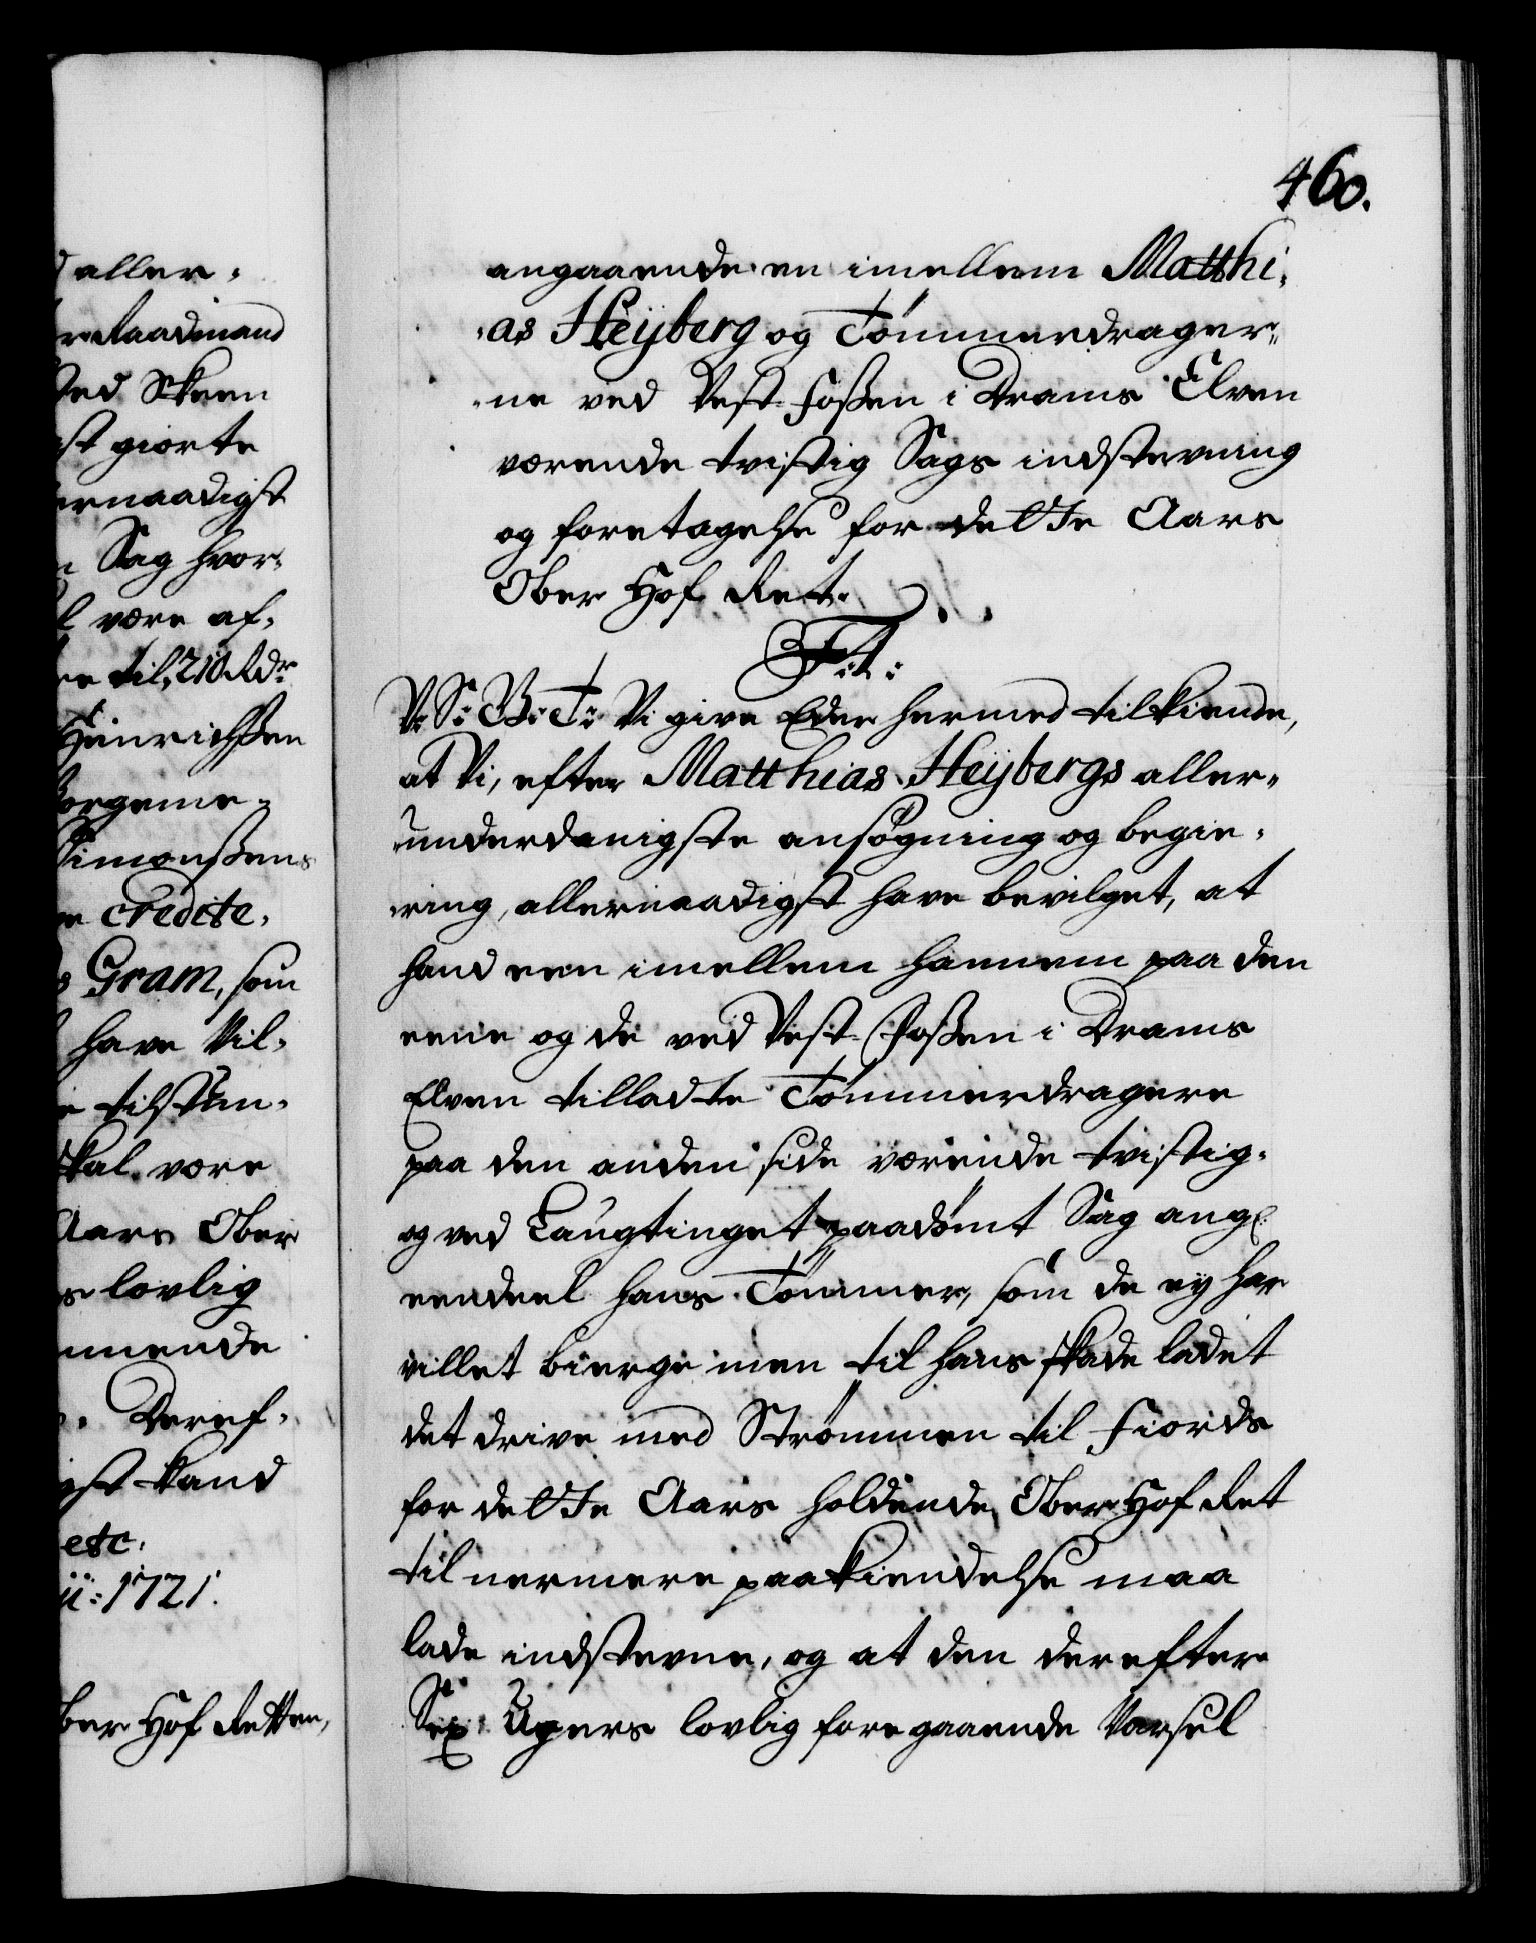 460.
d aller,
r Raadmand
Sted Skeen
st giorte
ernaadigst
Sag hvor,
l være af,
re til, 210 Rdr
Heinrichssen
Borgeme,
Simonssens
credite,
Gram, som
have Vil,
e tilstun,
skal være
Aars Ober
lovlig
mende
Deref,
gst kand
etc.
ii: 1721.
ber Hof Retten,
angaaende en imellem Matthi,
,as Heijberg og Tømmerdrager,
,ne ved Vest-Fossen i Drams Elven
værende tvistig Sags indstevning
og foretagelse for dette Aars
Ober Hof Ret.
F: 4:
V: S: B: T: Vi give Eder hermed tilkiende,
at Vi, efter Matthias Heijbergs aller,
underdanigste ansøgning og begie,
,ring, allernaadigst have bevilget, at
hand een imellem hannem paa den
eene og de ved Vest-Fossen i Drams
Elven tilladte Tømmerdragere
paa den anden side værende tvistig,
og ved Laugtinget paadømt Sag angl:
eendeel hans Tømmer, som de ey har
villet bierge men til hans skade ladet
det drive med Strømmen til Fiords
for dette Aars holdende Ober-Hof Ret
til nermere paakiendelse maa
lade indstevne, og at den derefter
Sex Ugers lovlig foregaaende Varsel